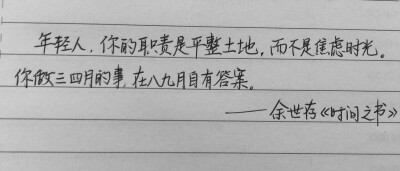 年轻人，你的职责是平整土地，而不是焦虑时光。
你做三四月的事，在八九月自有答案。
——余世存《时间之书》